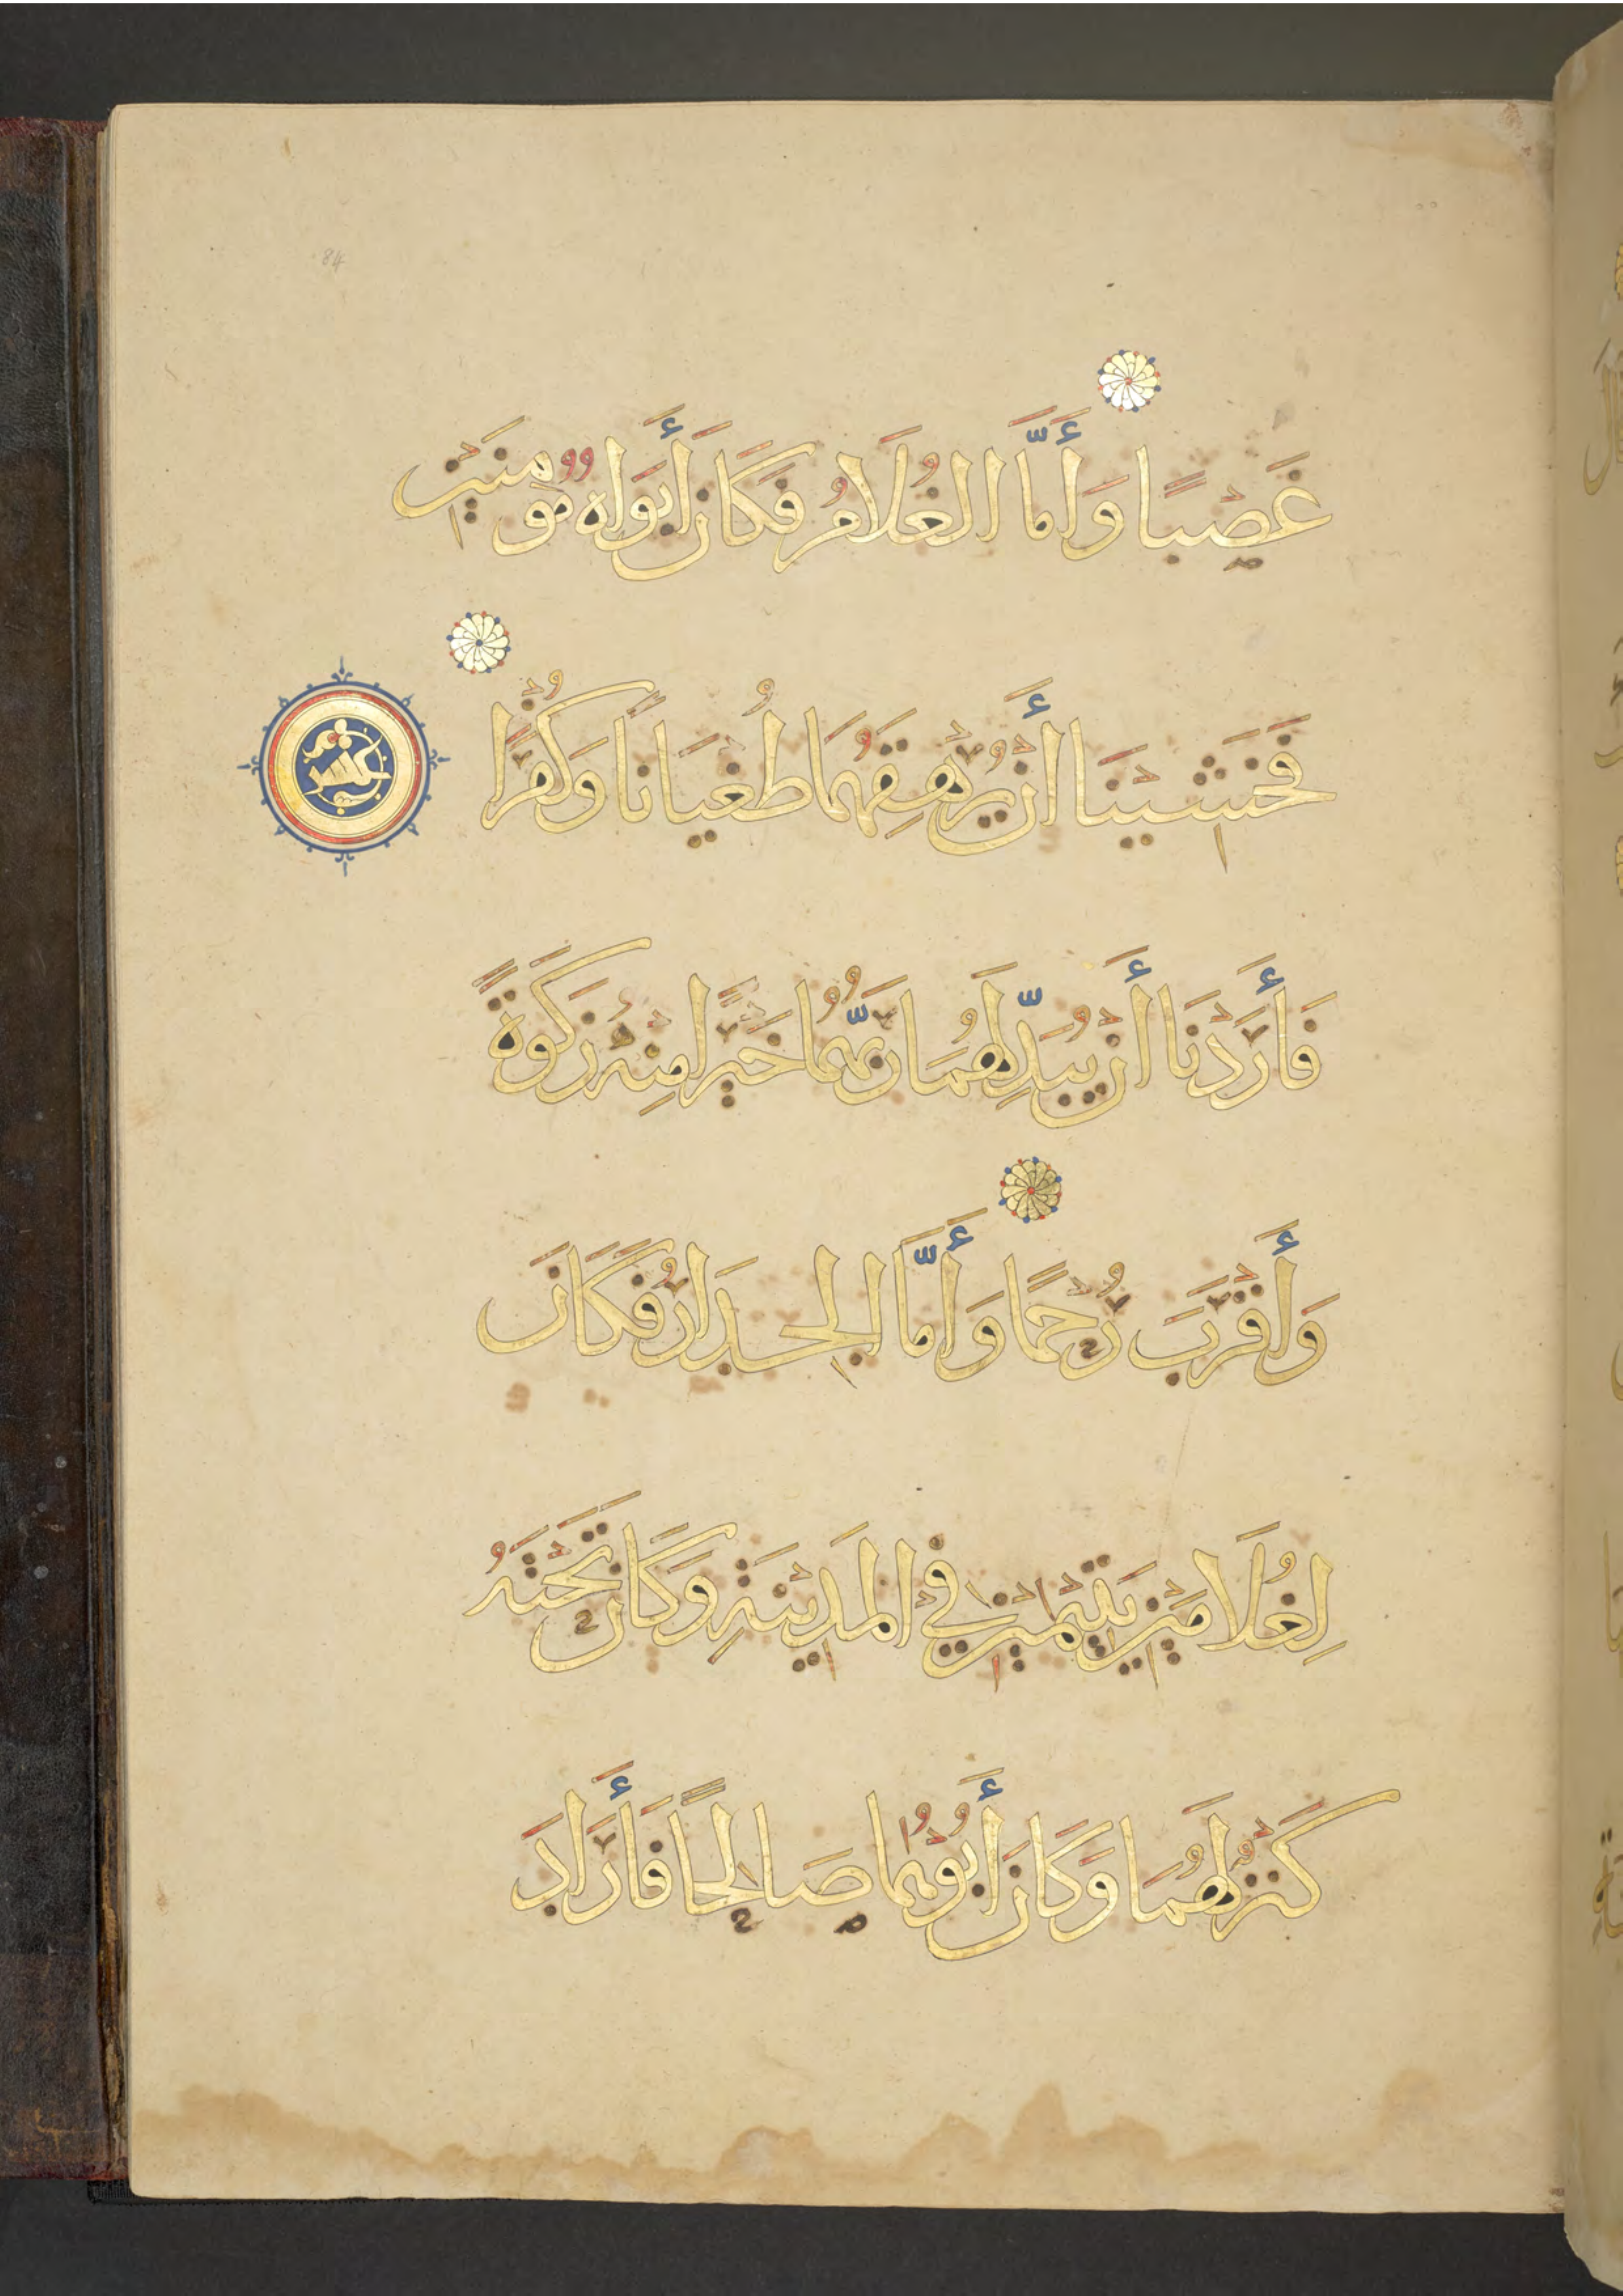 84
غَصْبًا وَأَمَّا الْغُلَامُ فَكَانَ أَبَوَاهُ مُومِنَيْنِ
فَخَشِينَا أَنْ يُرْهِقَهُمَا طُغْيَانًا وَكُفْرًا
فَأَرَدْنَا أَنْ يُبَدِّلَهُمَا رَبُّهُمَا خَيْرًا مِنْهُ زَكَوةً
وَأَقْرَبَ رُحْمًا وَأَمَّا الْجِدَارُ فَكَانَ
لِغُلَامَيْنِ يَتِيمَيْنِ فِي الْمَدِينَةِ وَكَانَ تَحْتَهُ
كَنْزٌ لَهُمَا وَكَانَ أَبُوهُمَا صَالِحًا فَأَرَادَ